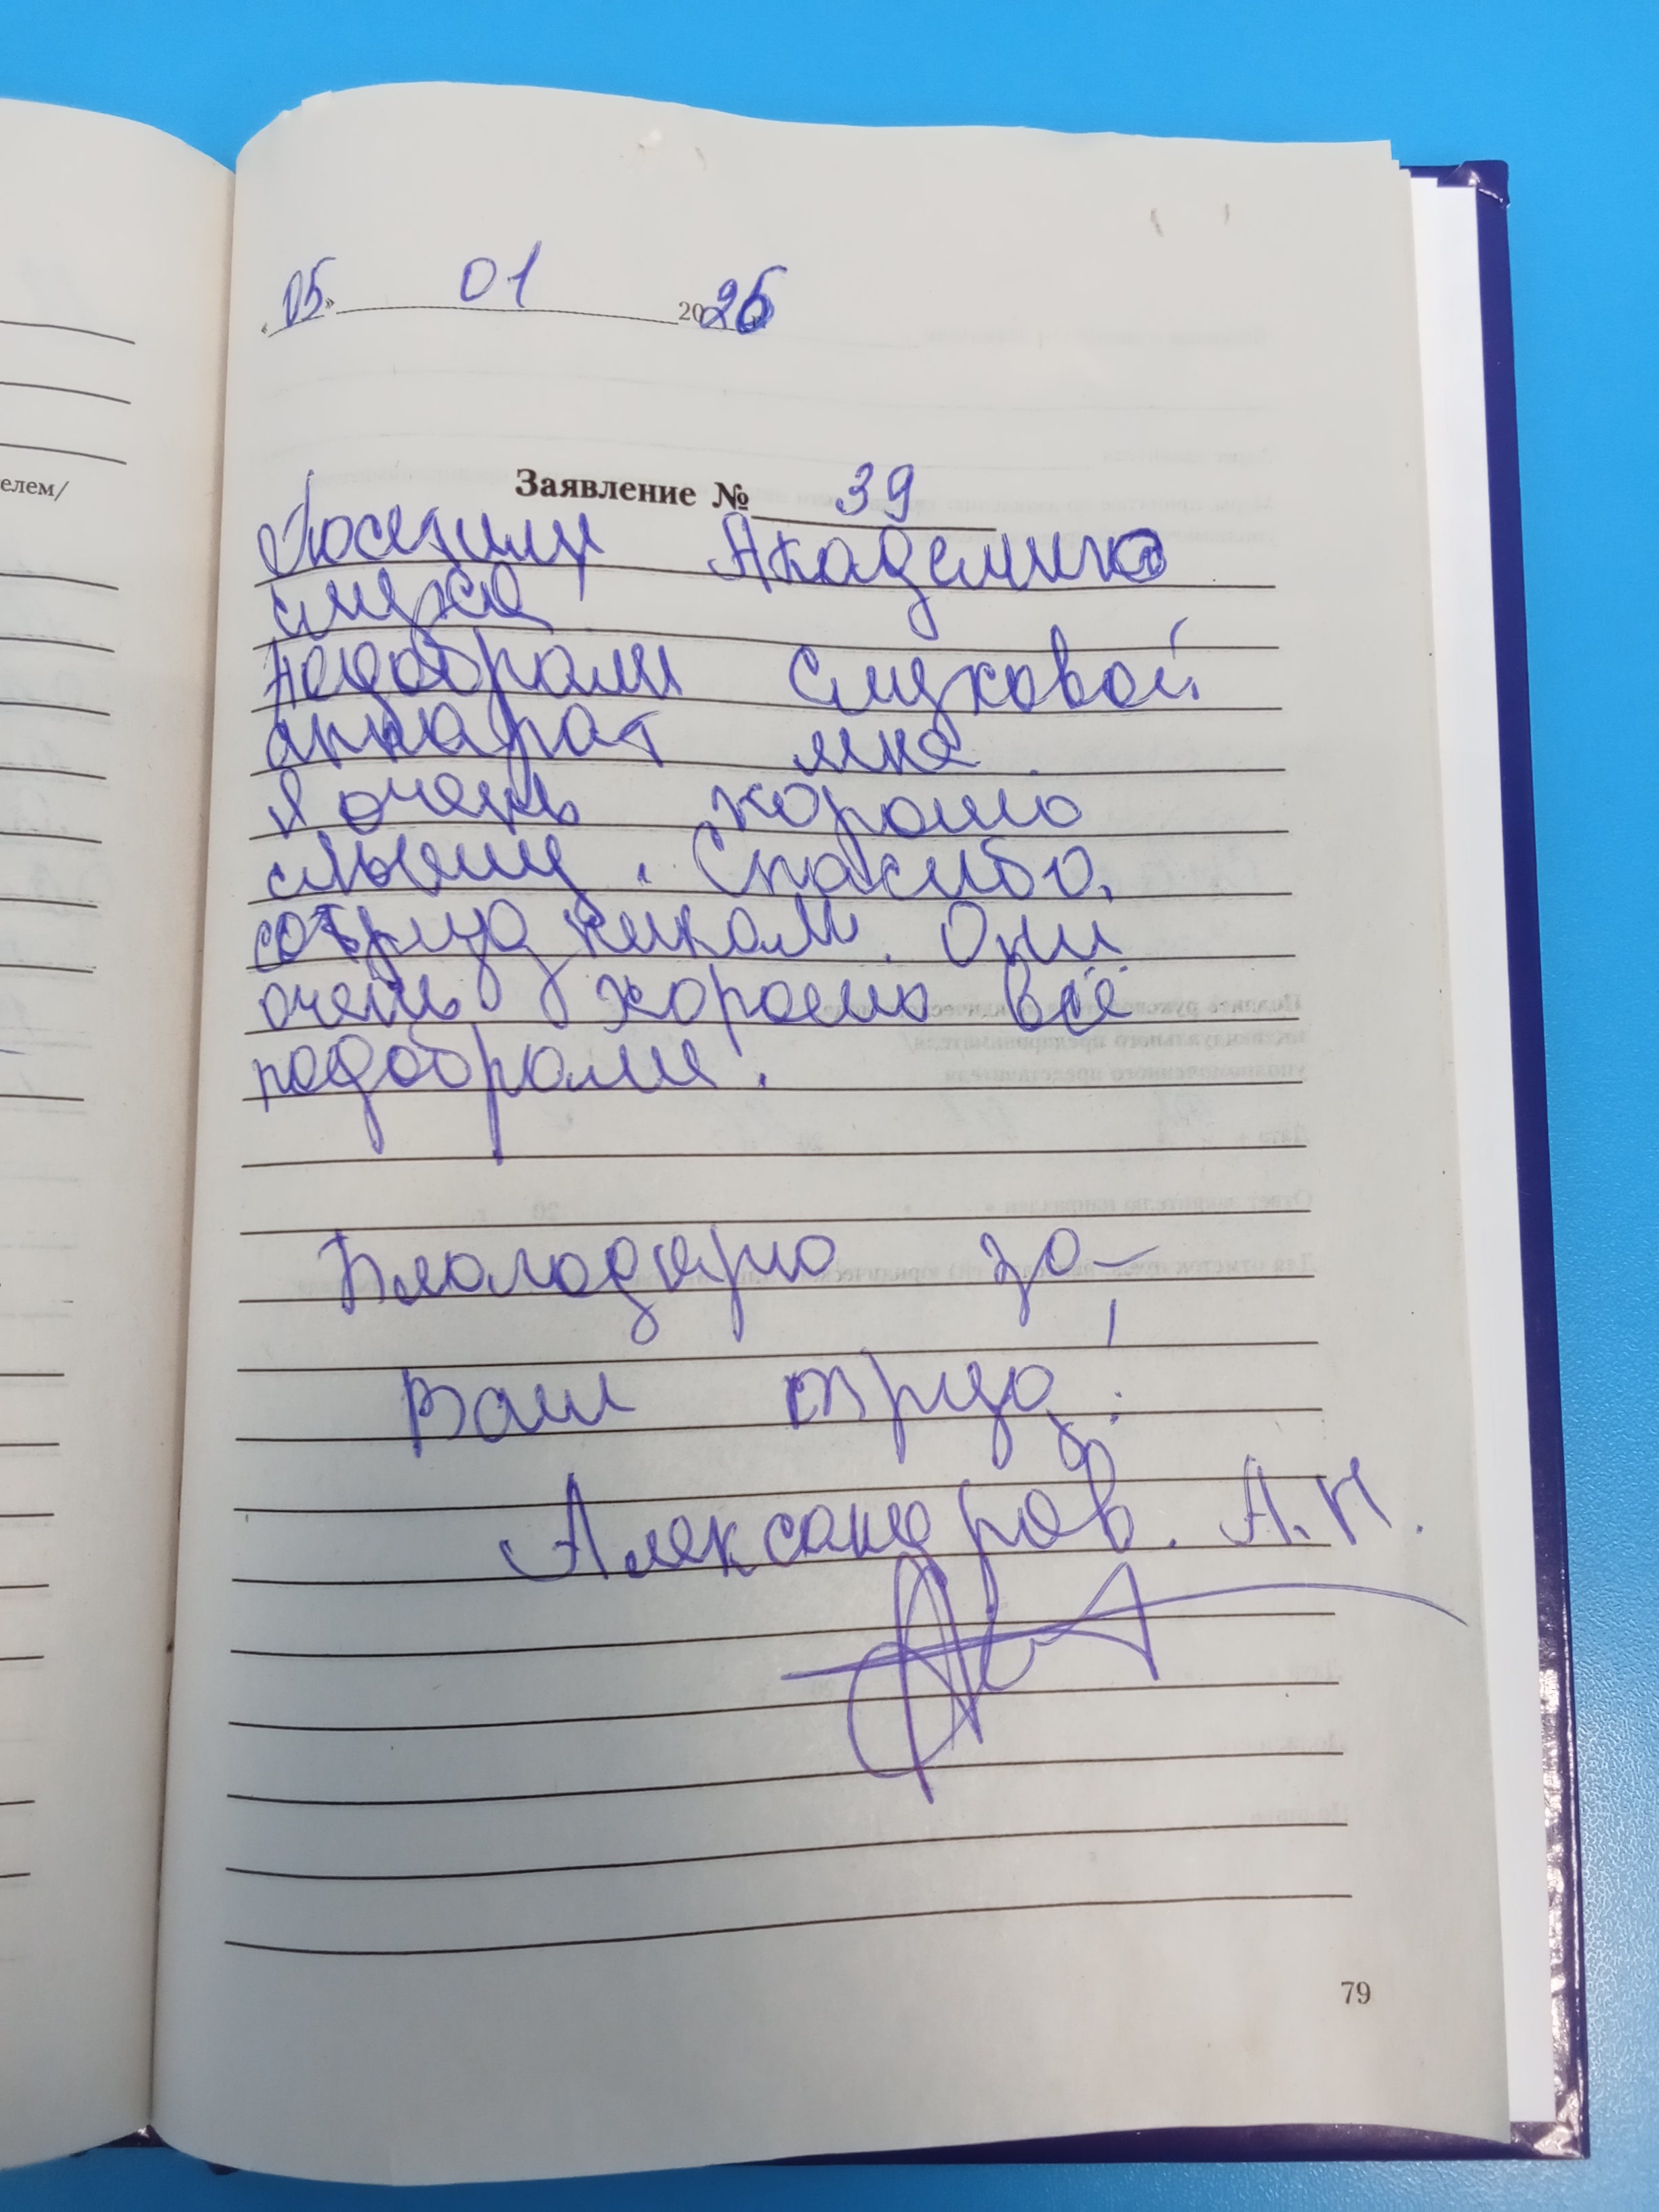 елем/
« 05 » 01 2026
Заявление № 39
Посетили Академию
слуха
подобрали слуховой
аппарат мне.
Я очень хорошо
слышу. Спасибо,
сотрудникам. Они
очень хорошо всё
подобрали.
Благодарю за-
Ваш труд!
Александров. А.П.
79